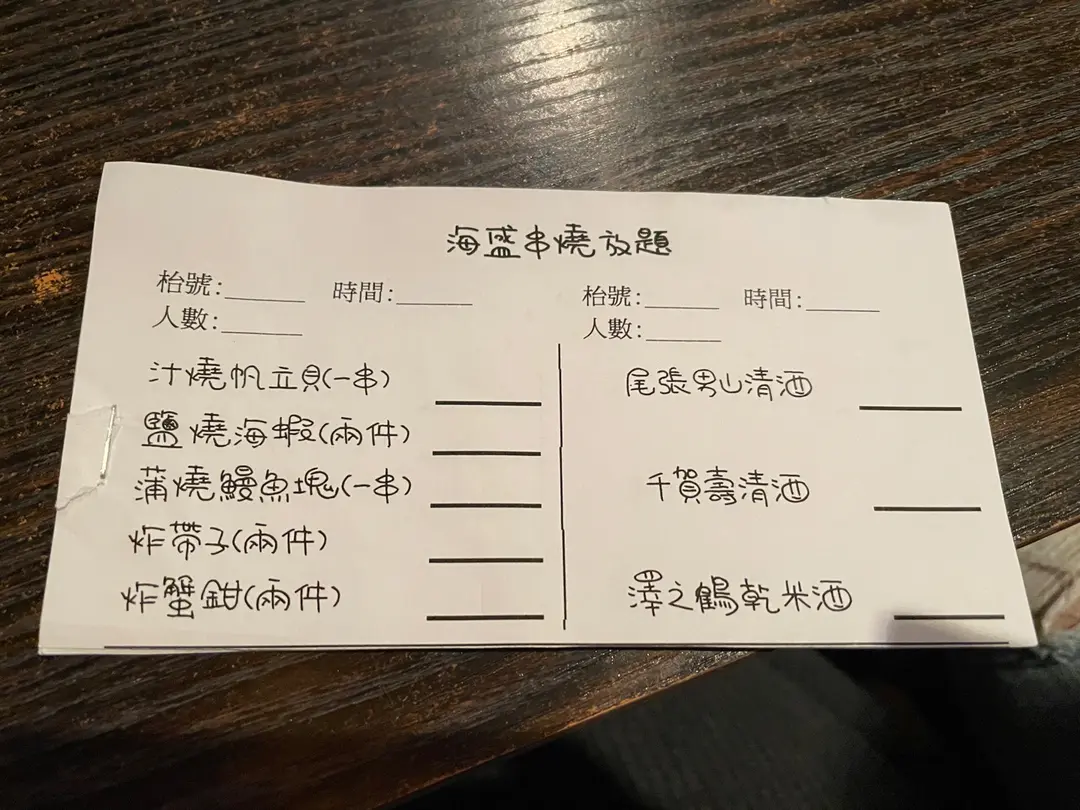 海盛串燒放題
枱號:______ 時間:______
人數:______
汁燒帆立貝(一串)
鹽燒海蝦(兩件)
蒲燒鰻魚塊(一串)
炸帶子(兩件)
炸蟹鉗(兩件)
枱號:______ 時間:______
人數:______
尾張男山清酒
千賀壽清酒
澤之鶴乾米酒